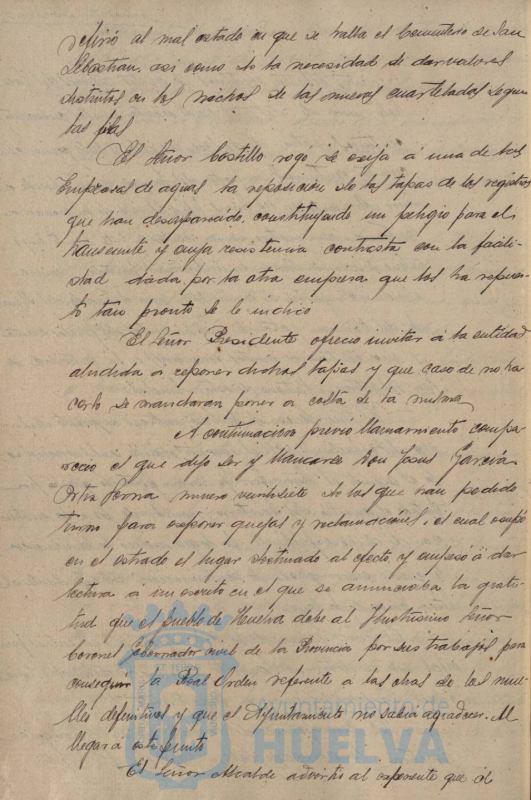 defirió al mal estado en que se halla el Cementerio de San
Sebastian, asi como de la necesidad de dar valores
distintos en los nichos de los nuevos cuartelados segun
las filas
El Señor Castillo rogó se exija á una de las
Empresas de aguas la reposicion de las tapas de los registros
que han desaparecido, constituyendo un peligro para el
transeunte y cuya resistencia contrasta con la facili-
dad dada por la otra empresa que las ha repues-
to tan pronto se le indicó
El Señor Presidente ofreció invitar á la entidad
aludida a reponer dichas tapas y que caso de no ha
cerlo se mandaran poner a costa de la misma
A continuacion previo llamamiento compa
recio el que dijo ser y llamarse Don Jesus Garcia
Ortiz Serna numero veintisiete de los que han pedido
turno para exponer quejas y reclamaciones, el cual ocupó
en el estrado el lugar destinado al efecto y empesó á dar
lectura á un escrito en el que se anunciaba la grati
tud que el pueblo de Huelva debe al Ilustrisimo Señor
Coronel Gobernador civil de la Provincia por sus trabajos para
conseguir la Real Orden referente a las obras de los mue-
lles definitivos y que el Ayuntamiento no sabia agradecer. Al
llegar a este punto
El Señor Alcalde advirtio al exponente que él
Ayuntamiento de
HUELVA